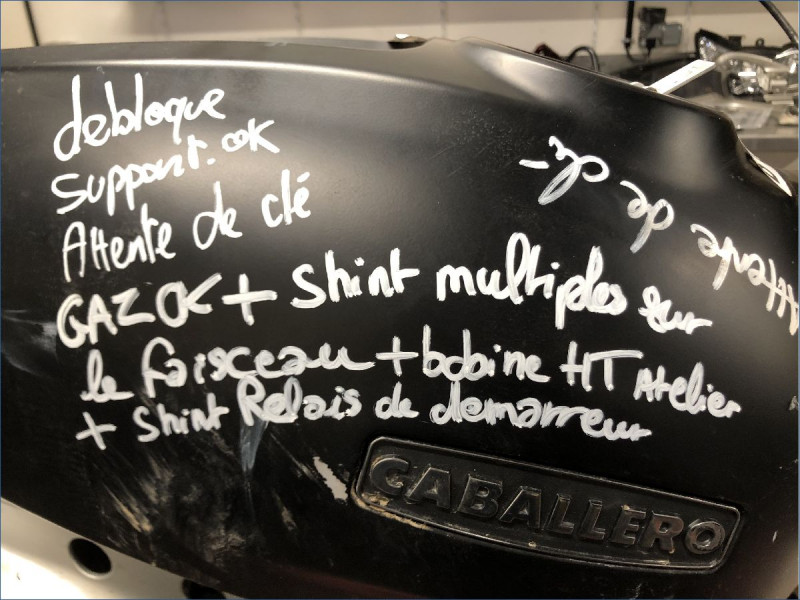 debloque
support. ok
Attente de clé
GAZ OK + Shint multiples sur
le faisceau + bobine HT Atelier
+ Shint Relais de demarreur
Attente de clé
CABALLERO